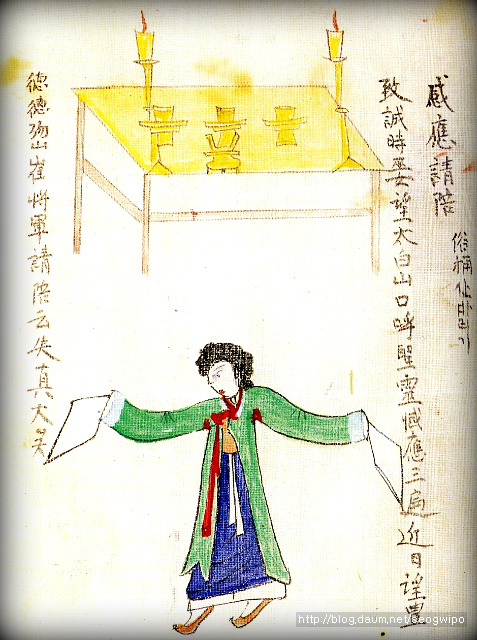 感應請陪
俗稱산바라기
致誠時巫望太白山口呼聖靈感應三遍近日謂豊
德德物山崔將軍請陪云失真大矣
http://blog.daum.net/seogwipo